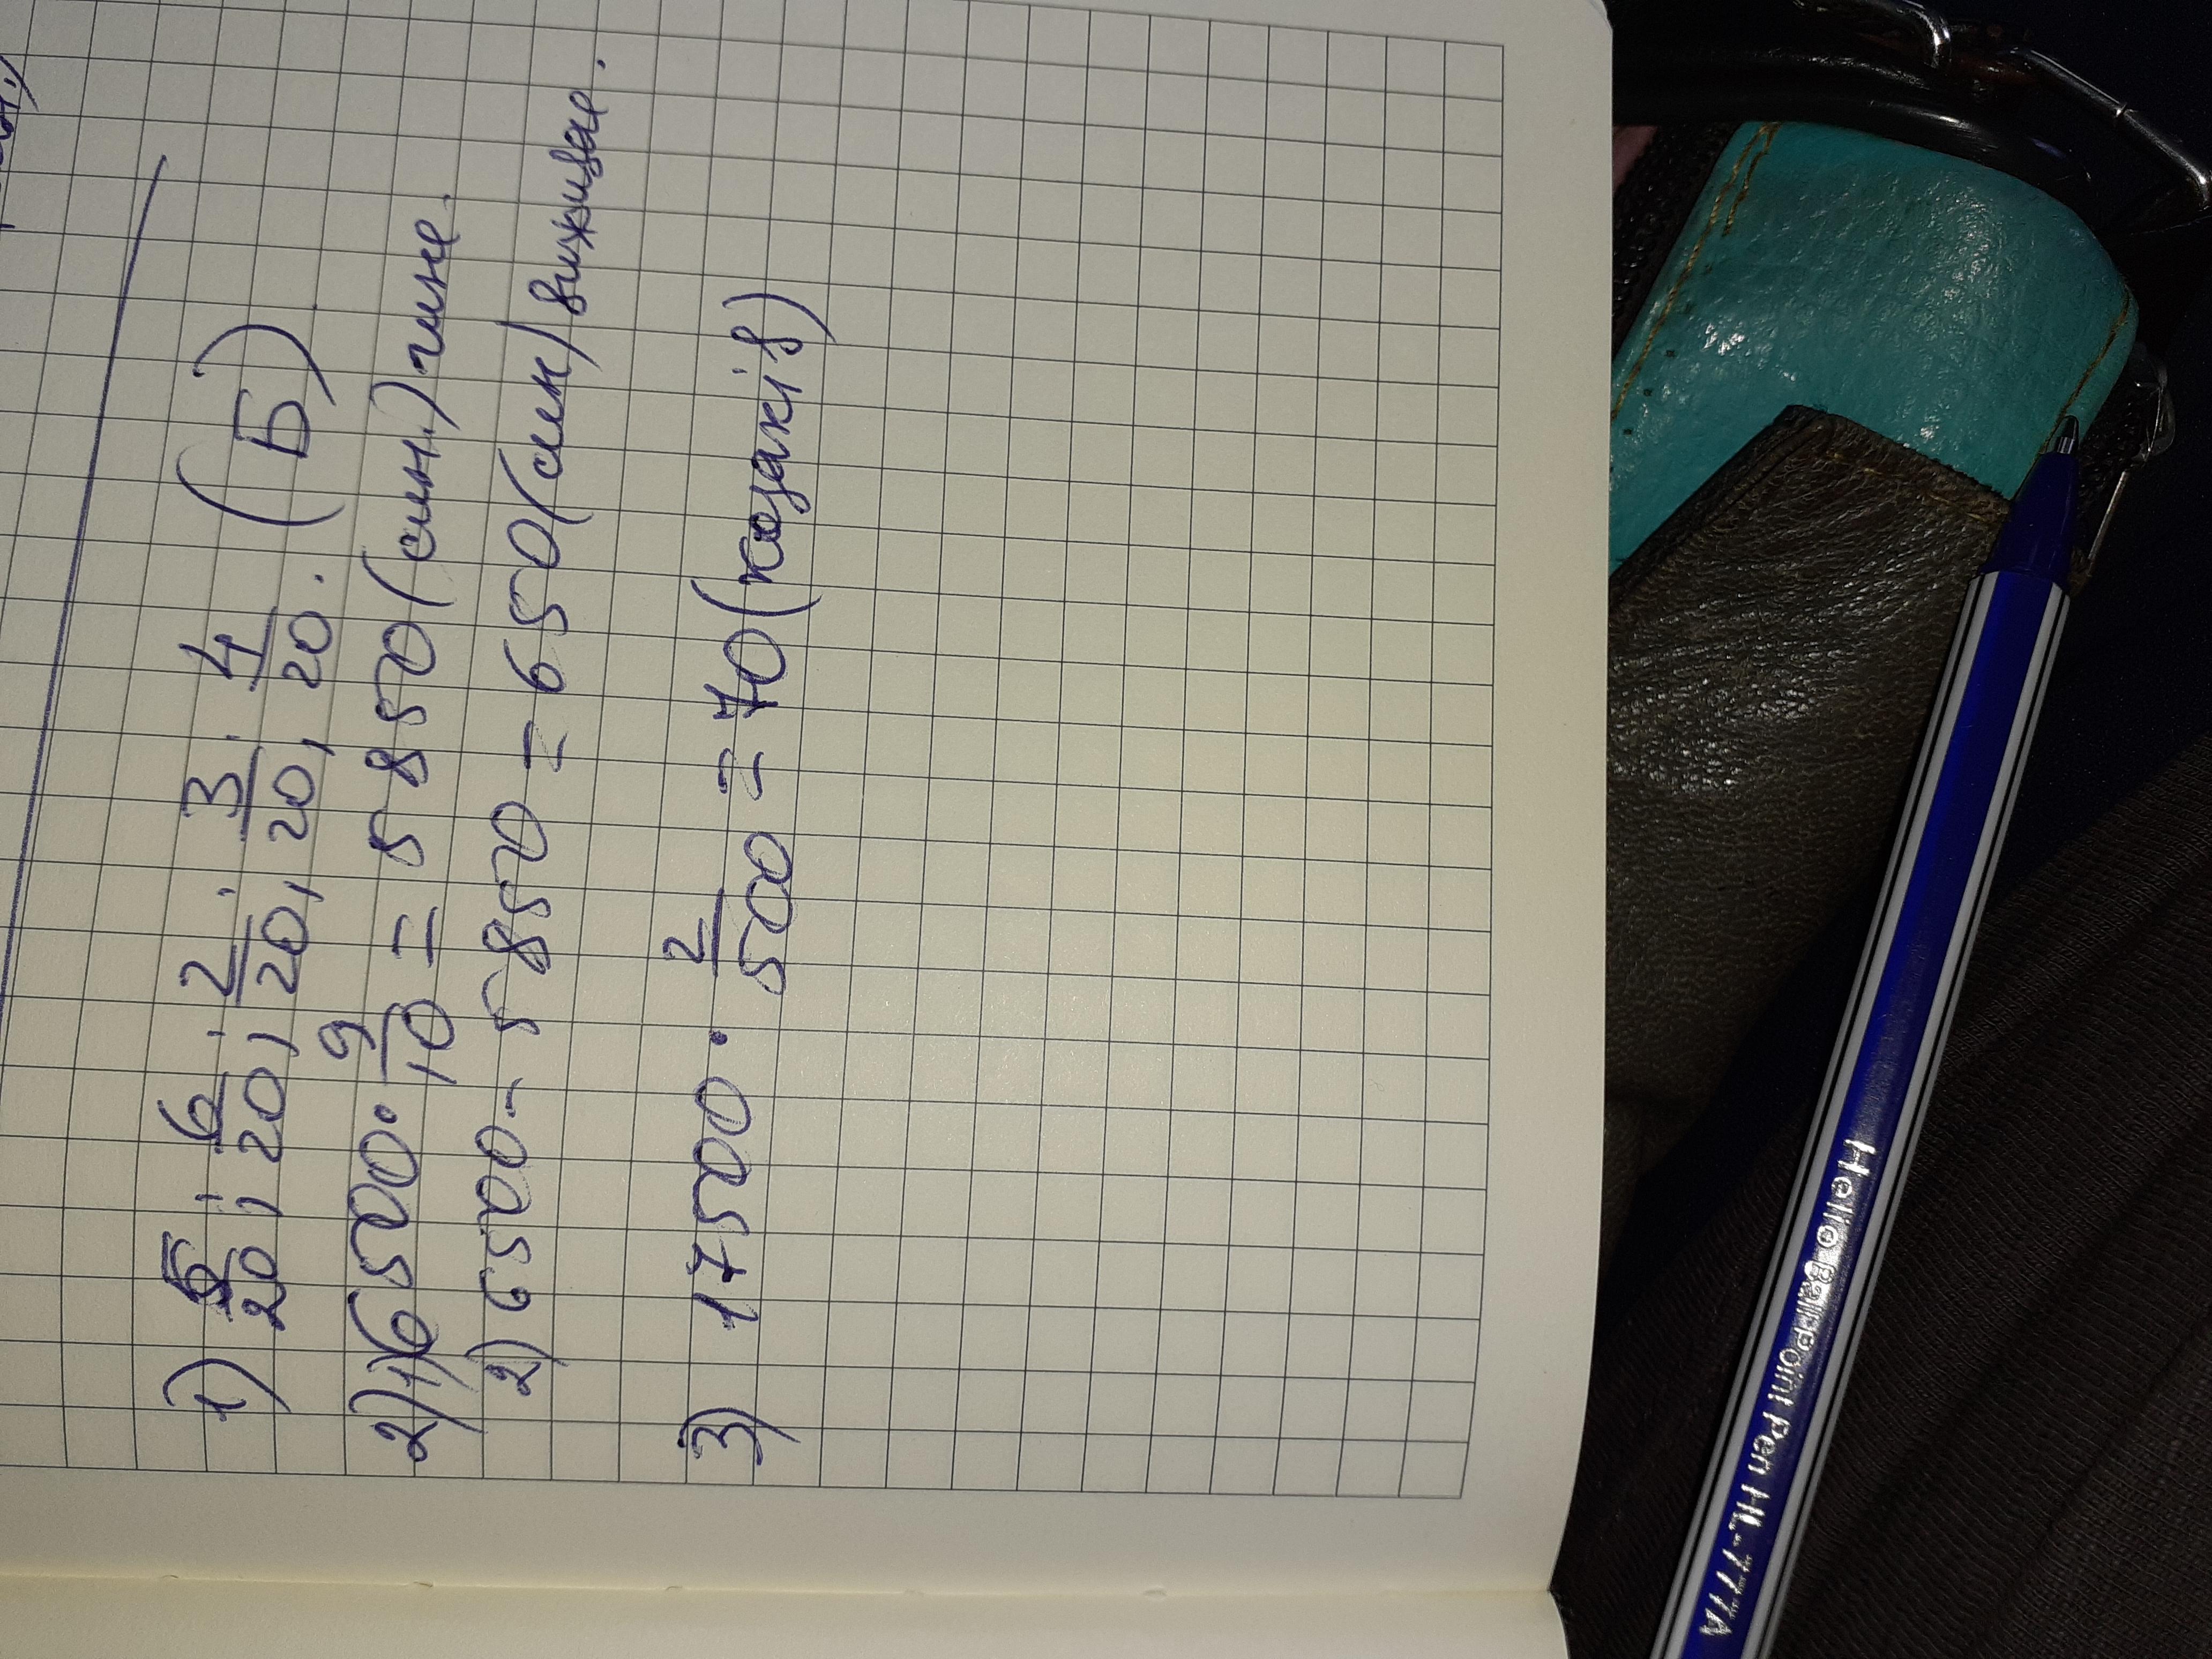 1) 5/20; 6/20; 2/20; 3/20; 4/20. (Б)
2) 1) 6500 · 9/10 = 5850 (син.) гине.
2) 6500 - 5850 = 650 (син) виживає.
3) 17500 · 2/500 = 70 (козаків)
Hello Ball Point Pen HL-777A